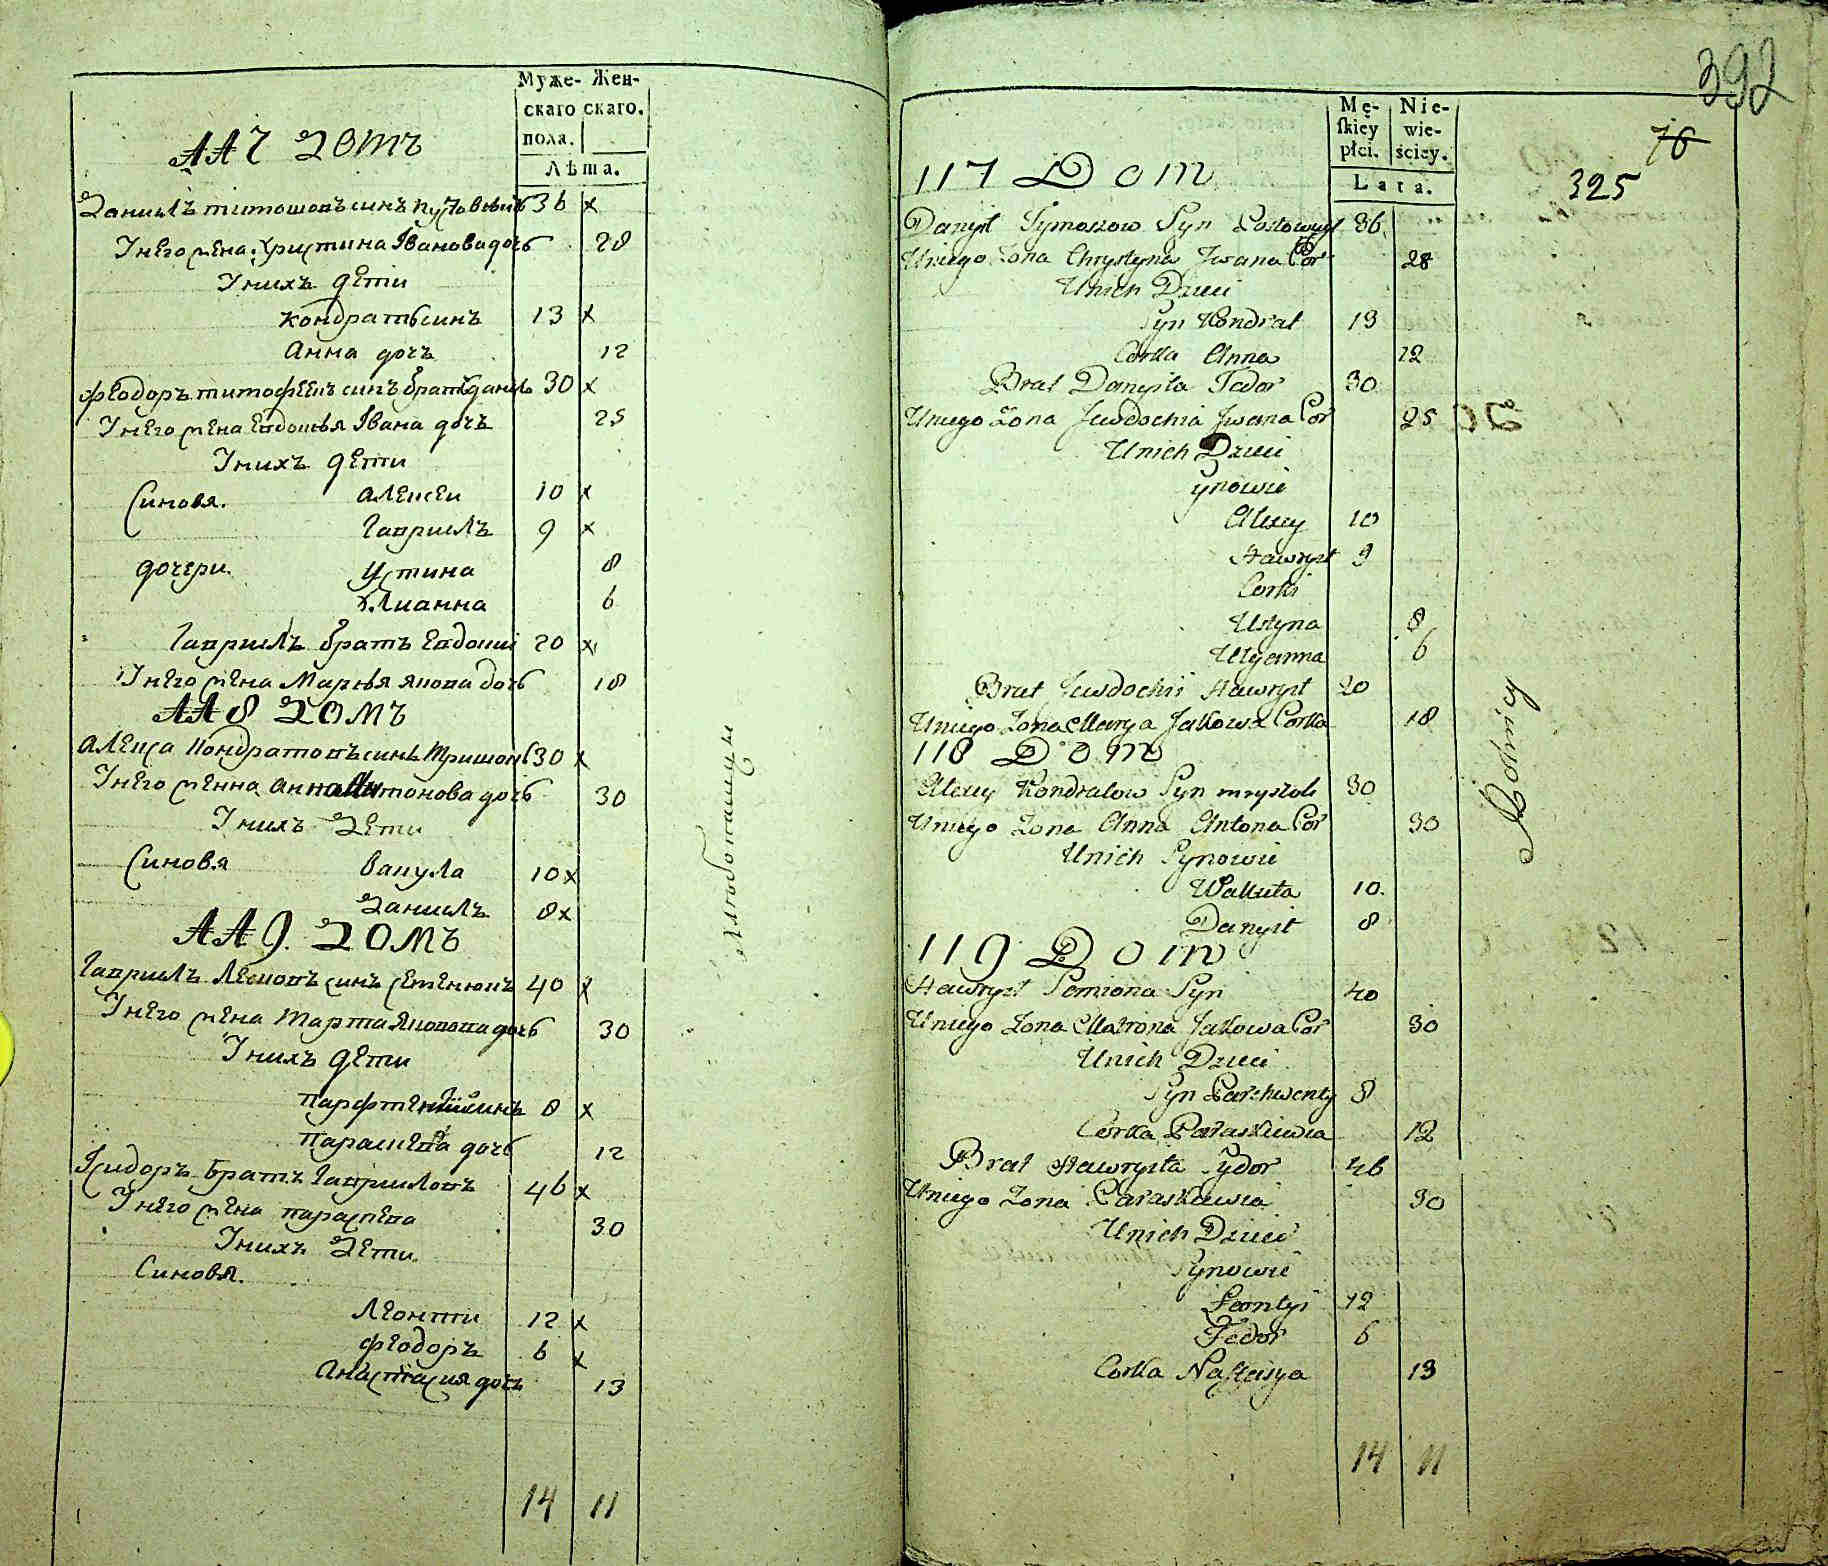 Муже- Жен-
скаго скаго.
пола.
Лѣта.
АА7 Домъ
Данилъ тимошовъ синъ 36 х
Унего жена Христина Івановa дочь 28
Унихъ дети
кондратъ синъ 13 х
Анна дочъ 12
Феодоръ тимофеевъ синъ братъ данила 30 х
Унего жена Евдокия Івана дочъ 25
Унихъ дети
Синовя. Алексеи 10 х
Гавриилъ 9 х
дочери Устина 8
Улианна 6
Гавриилъ братъ Евдокиі 20 х
Унего жена Маря яковa дочь 18
АА8 Домъ
Алекса Кондратовъ синъ 30 х
Унего женна Анна Антонова дочь 30
Унихъ Дети
Синовя Вакула 10 х
Данилъ 8 х
АА9. Домъ
Гавриилъ синъ 40 х
Унего жена Марта Яковова дочь 30
Унихъ дети
Парфтені синъ 8 х
Параскева дочь 12
Ісидоръ братъ Гавриловъ 46 х
Унего жена параскева 30
Унихъ Дети.
Синовя.
Леонти 12 х
Феодоръ 6 х
Анастасия дочъ 13
14 11
392
76
325
Mę- Nie-
skiey wie-
płci. ściey.
Lata.
117 Dom
Danyił Tymoszow Syn 36.
Uniego Zona Chrystyna Jwana Cor 28
Unich Dzieci
Syn Kondrat 13
Corka Anna 12
Brat Danyiła Fedor 30
Uniego Zona Jewdochia Jwana Cor 25
Unich Dzieci
Synowie
Alexy 10
Hawryił 9
Corki
Ustyna 8
Ulyanna 6
Brat Jewdochii Hawryił 20
Uniego Zona Marya Jakowa Corka 18
118 Dom
Alexy Kondratow Syn 30
Uniego Zona Anna Antona Cor 30
Unich Synowie
Wakuła 10.
Danyił 8
119 Dom
Hawryił Semiona Syn 40
Uniego Zona Matrona Jakowa Cor 30
Unich Dzieci
Syn Parchwenty 8
Corka Paraskiewia 12
Brat Hawryiła Sydor 46
Uniego Zona Paraskewia 30
Unich Dzieci
Synowie
Leontyi 12
Fedor 6
Corka Nastazya 13
14 11